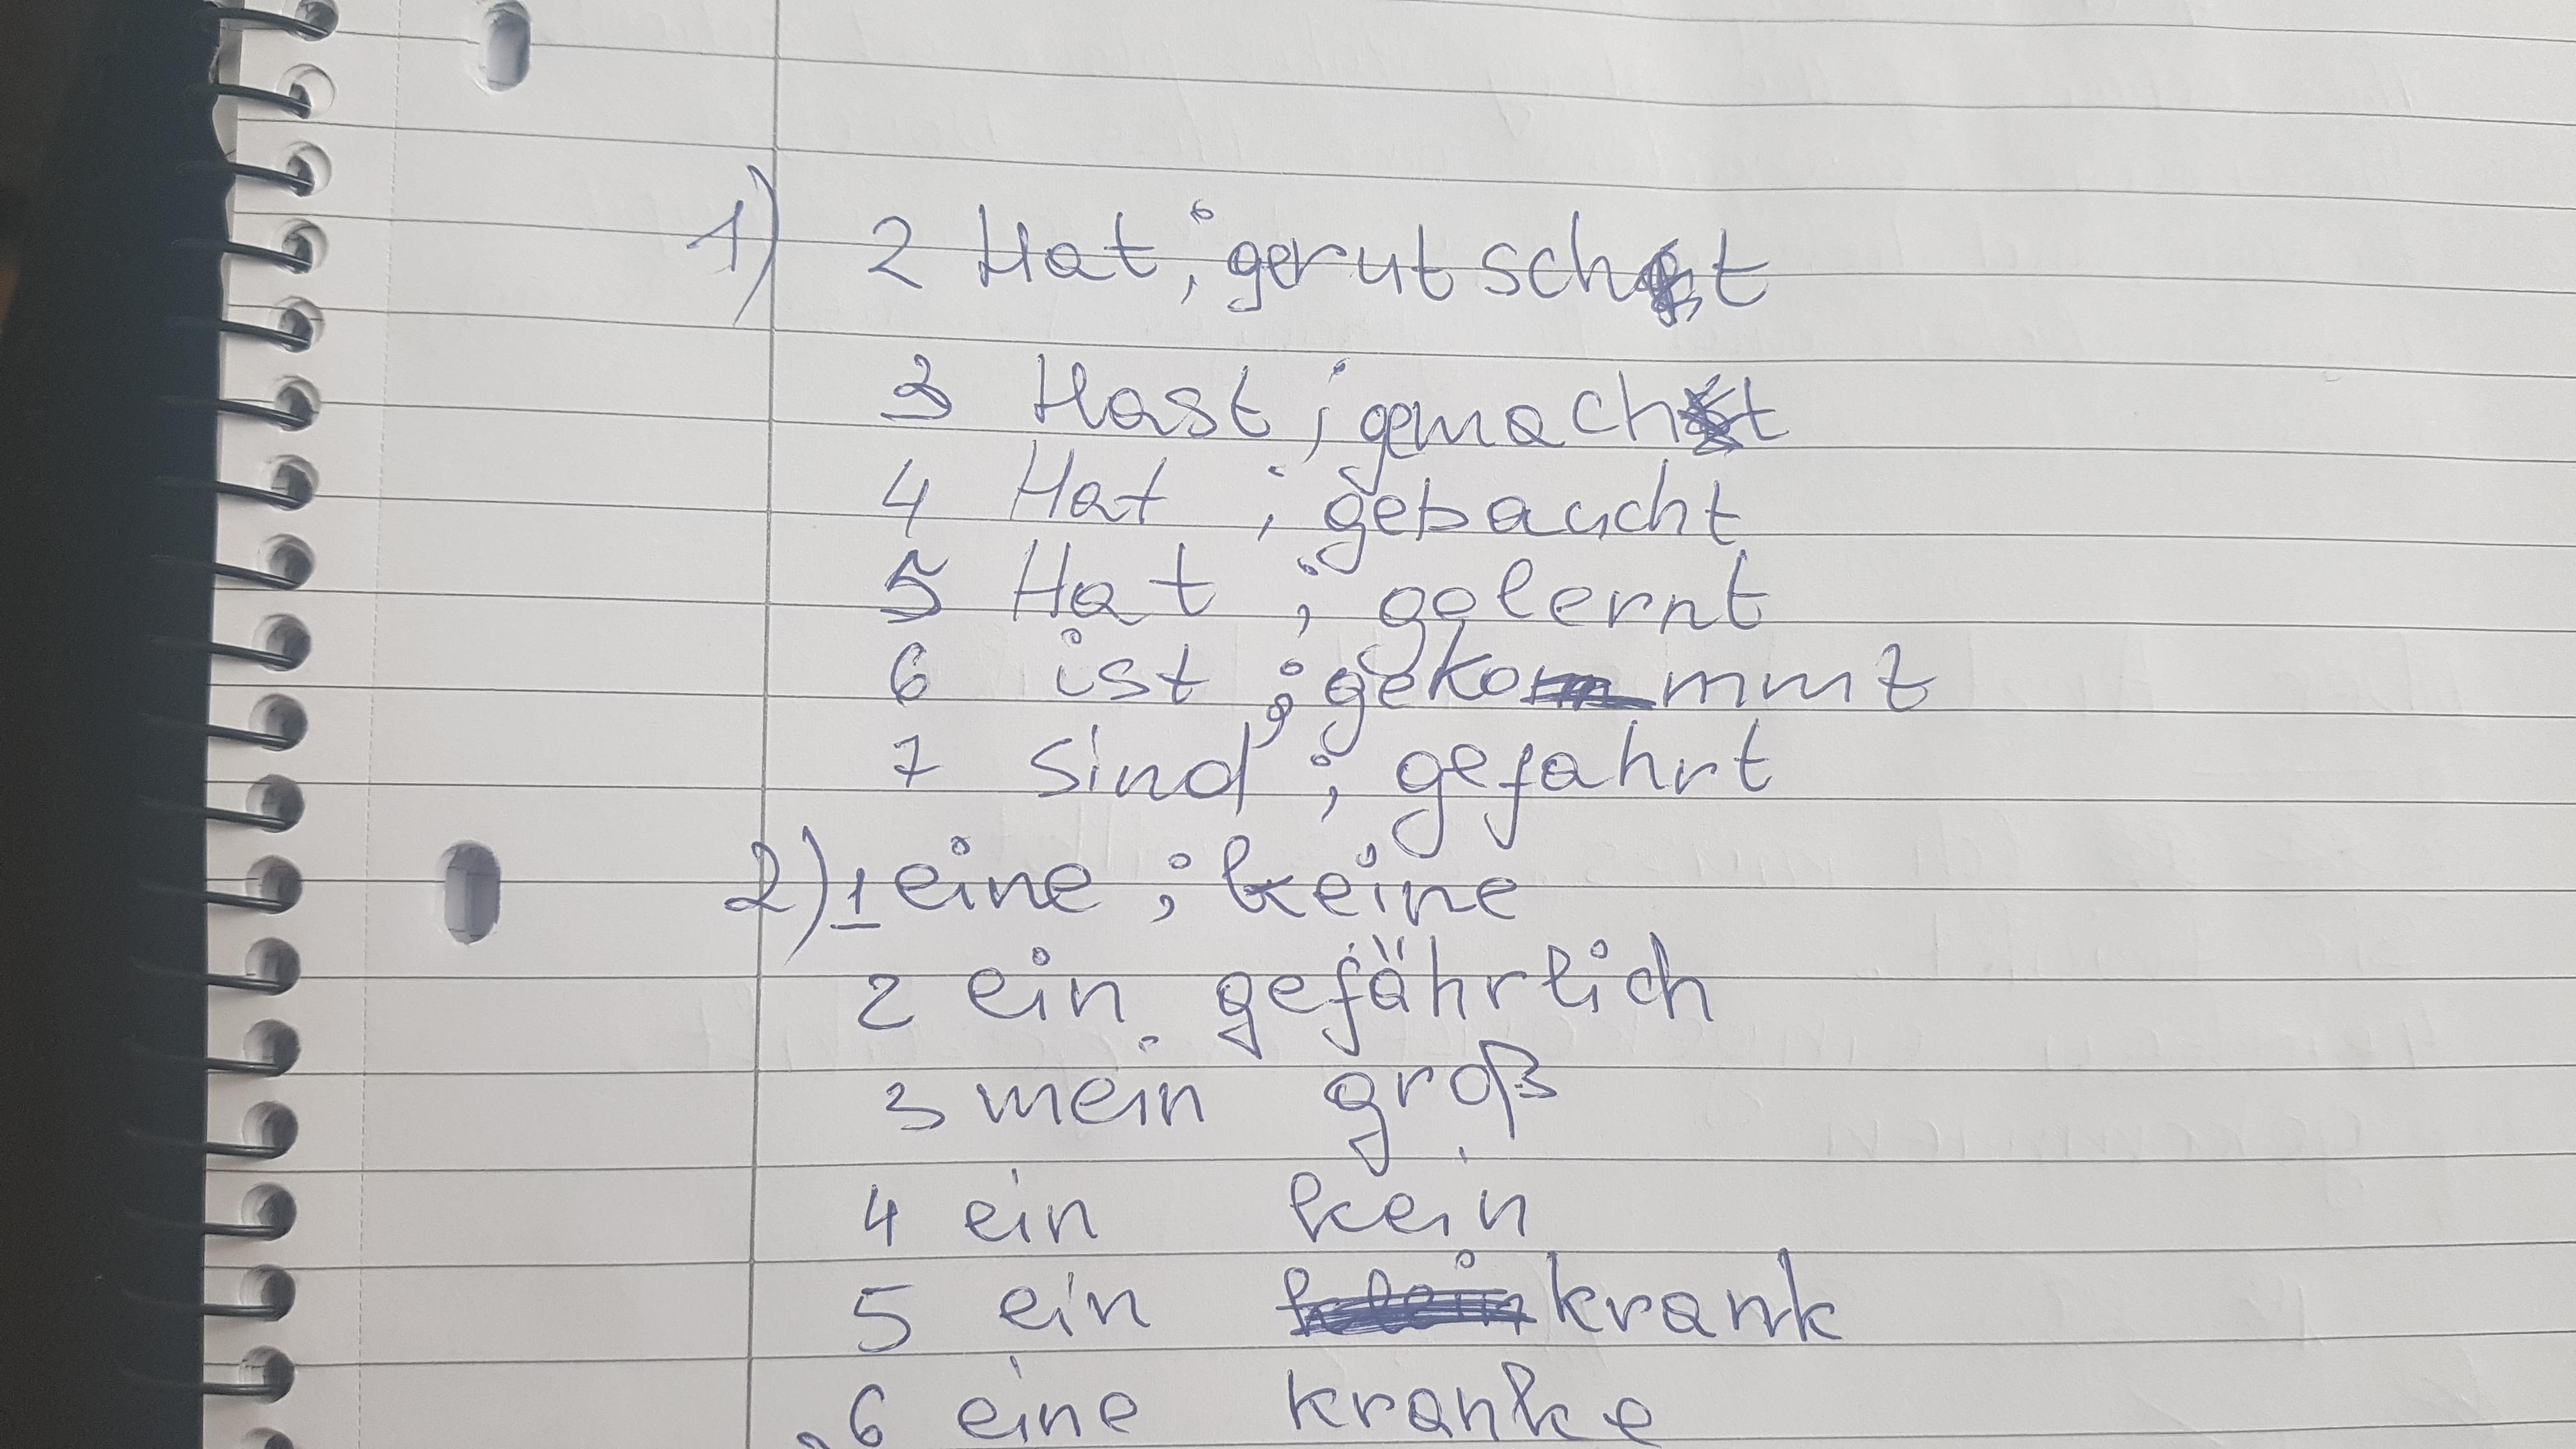 1) 2 Hat ; gerutscht
3 Hast ; gemacht
4 Hat ; gebaucht
5 Hat ; gelernt
6 ist ; gekommt
7 sind ; gefahrt
2) 1 eine ; keine
2 ein gefährlich
3 mein groß
4 ein kein
5 ein krank
6 eine kranke